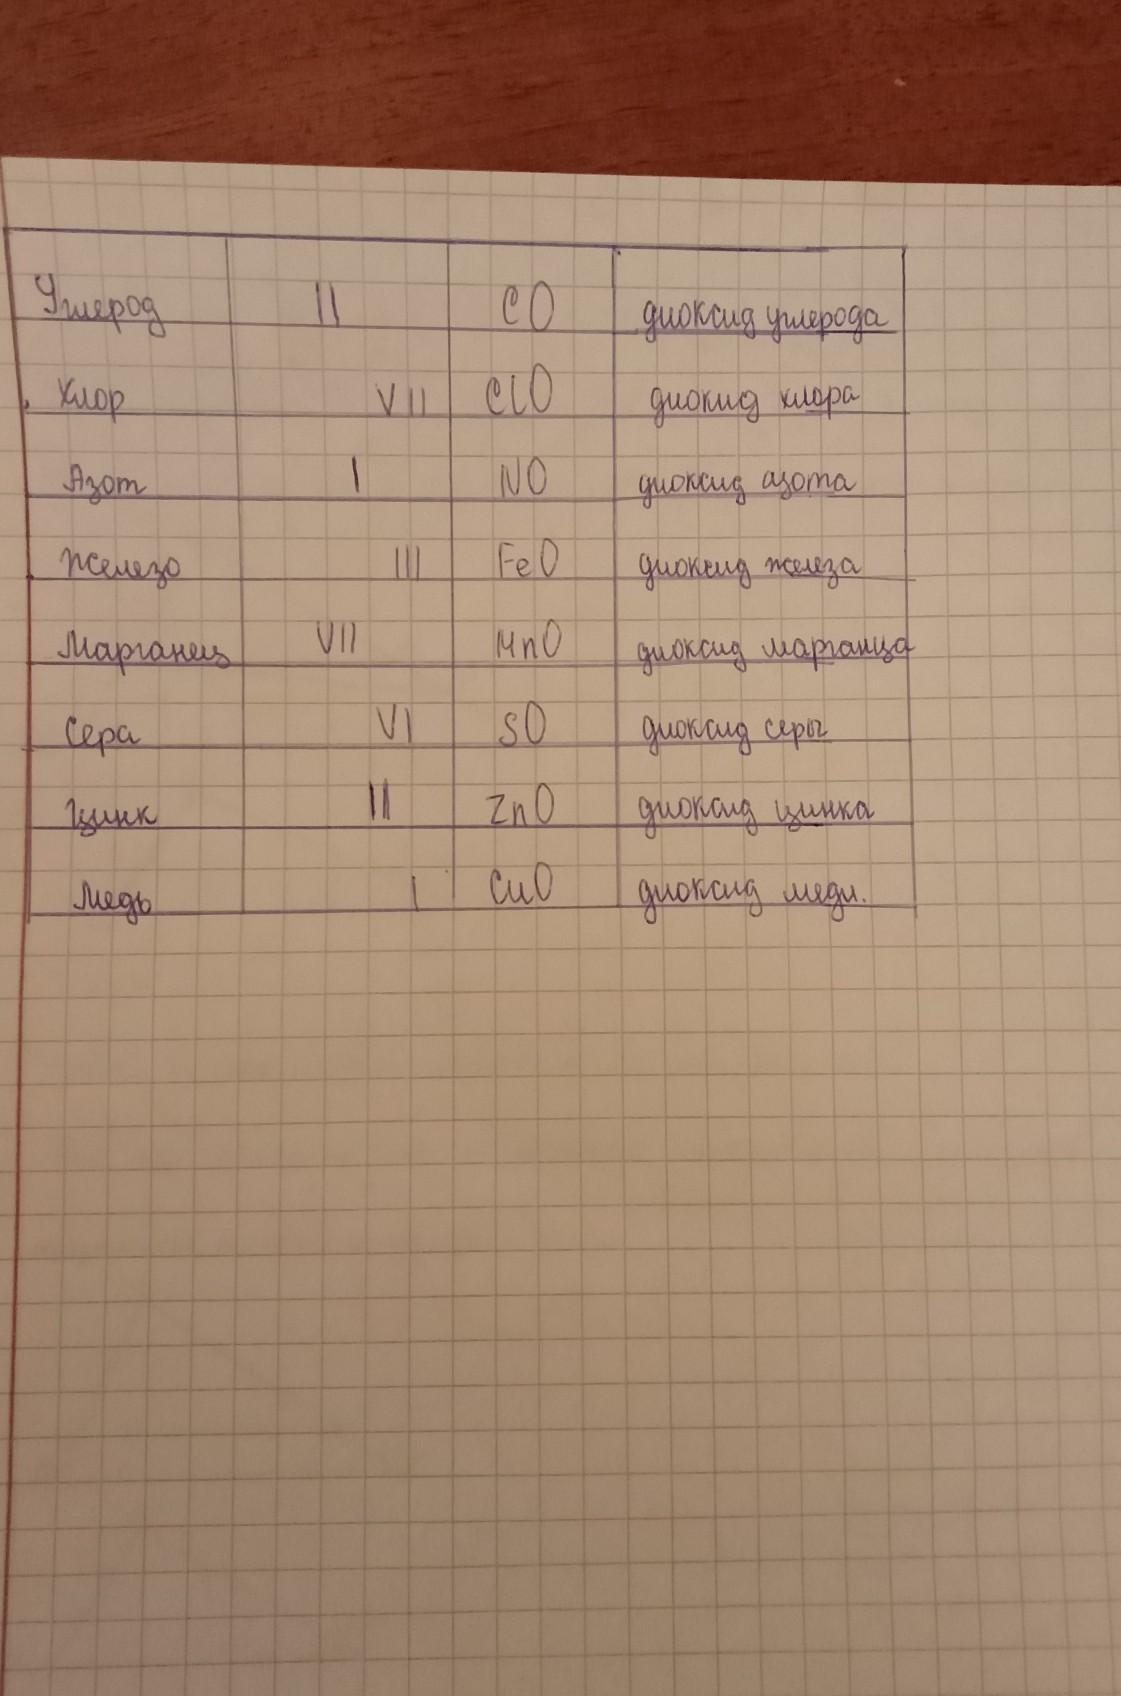 Углерод II CO диоксид углерода
Хлор VII ClO диокид хлора
Азот I NO диоксид азота
Железо III FeO диоксид железа
Марганец VII MnO диоксид марганца
Сера VI SO диоксид серы
Цинк II ZnO диоксид цинка
Медь I CuO диоксид меди.